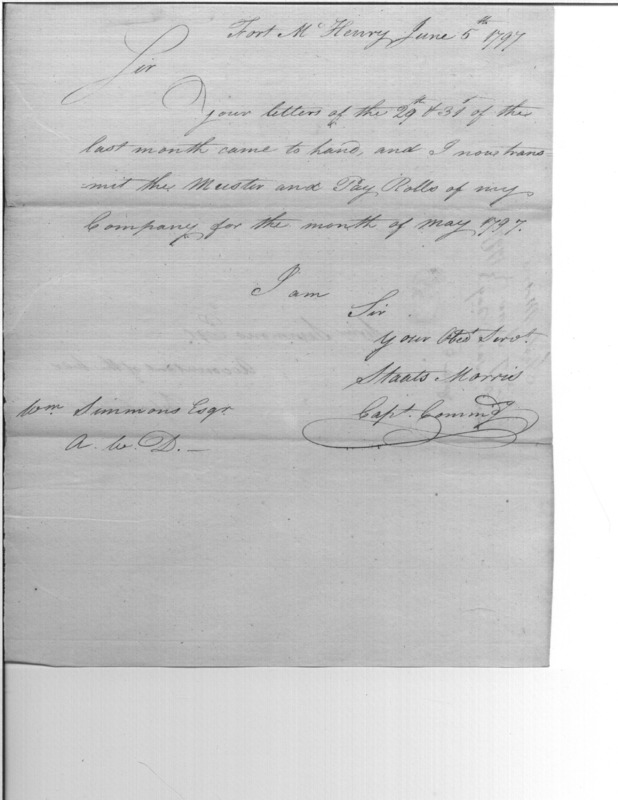 Fort Mc Henry June 5th 1797
Sir
your letters of the 29th & 31st of the
last month came to hand, and I now trans-
mit the Muster and Pay Rolls of my
Company for the month of may 1797.
I am
Sir
your Obed Servt.
Staats Morris
Capt. Commdg
Wm Simmons Esqr
A. W. D. —